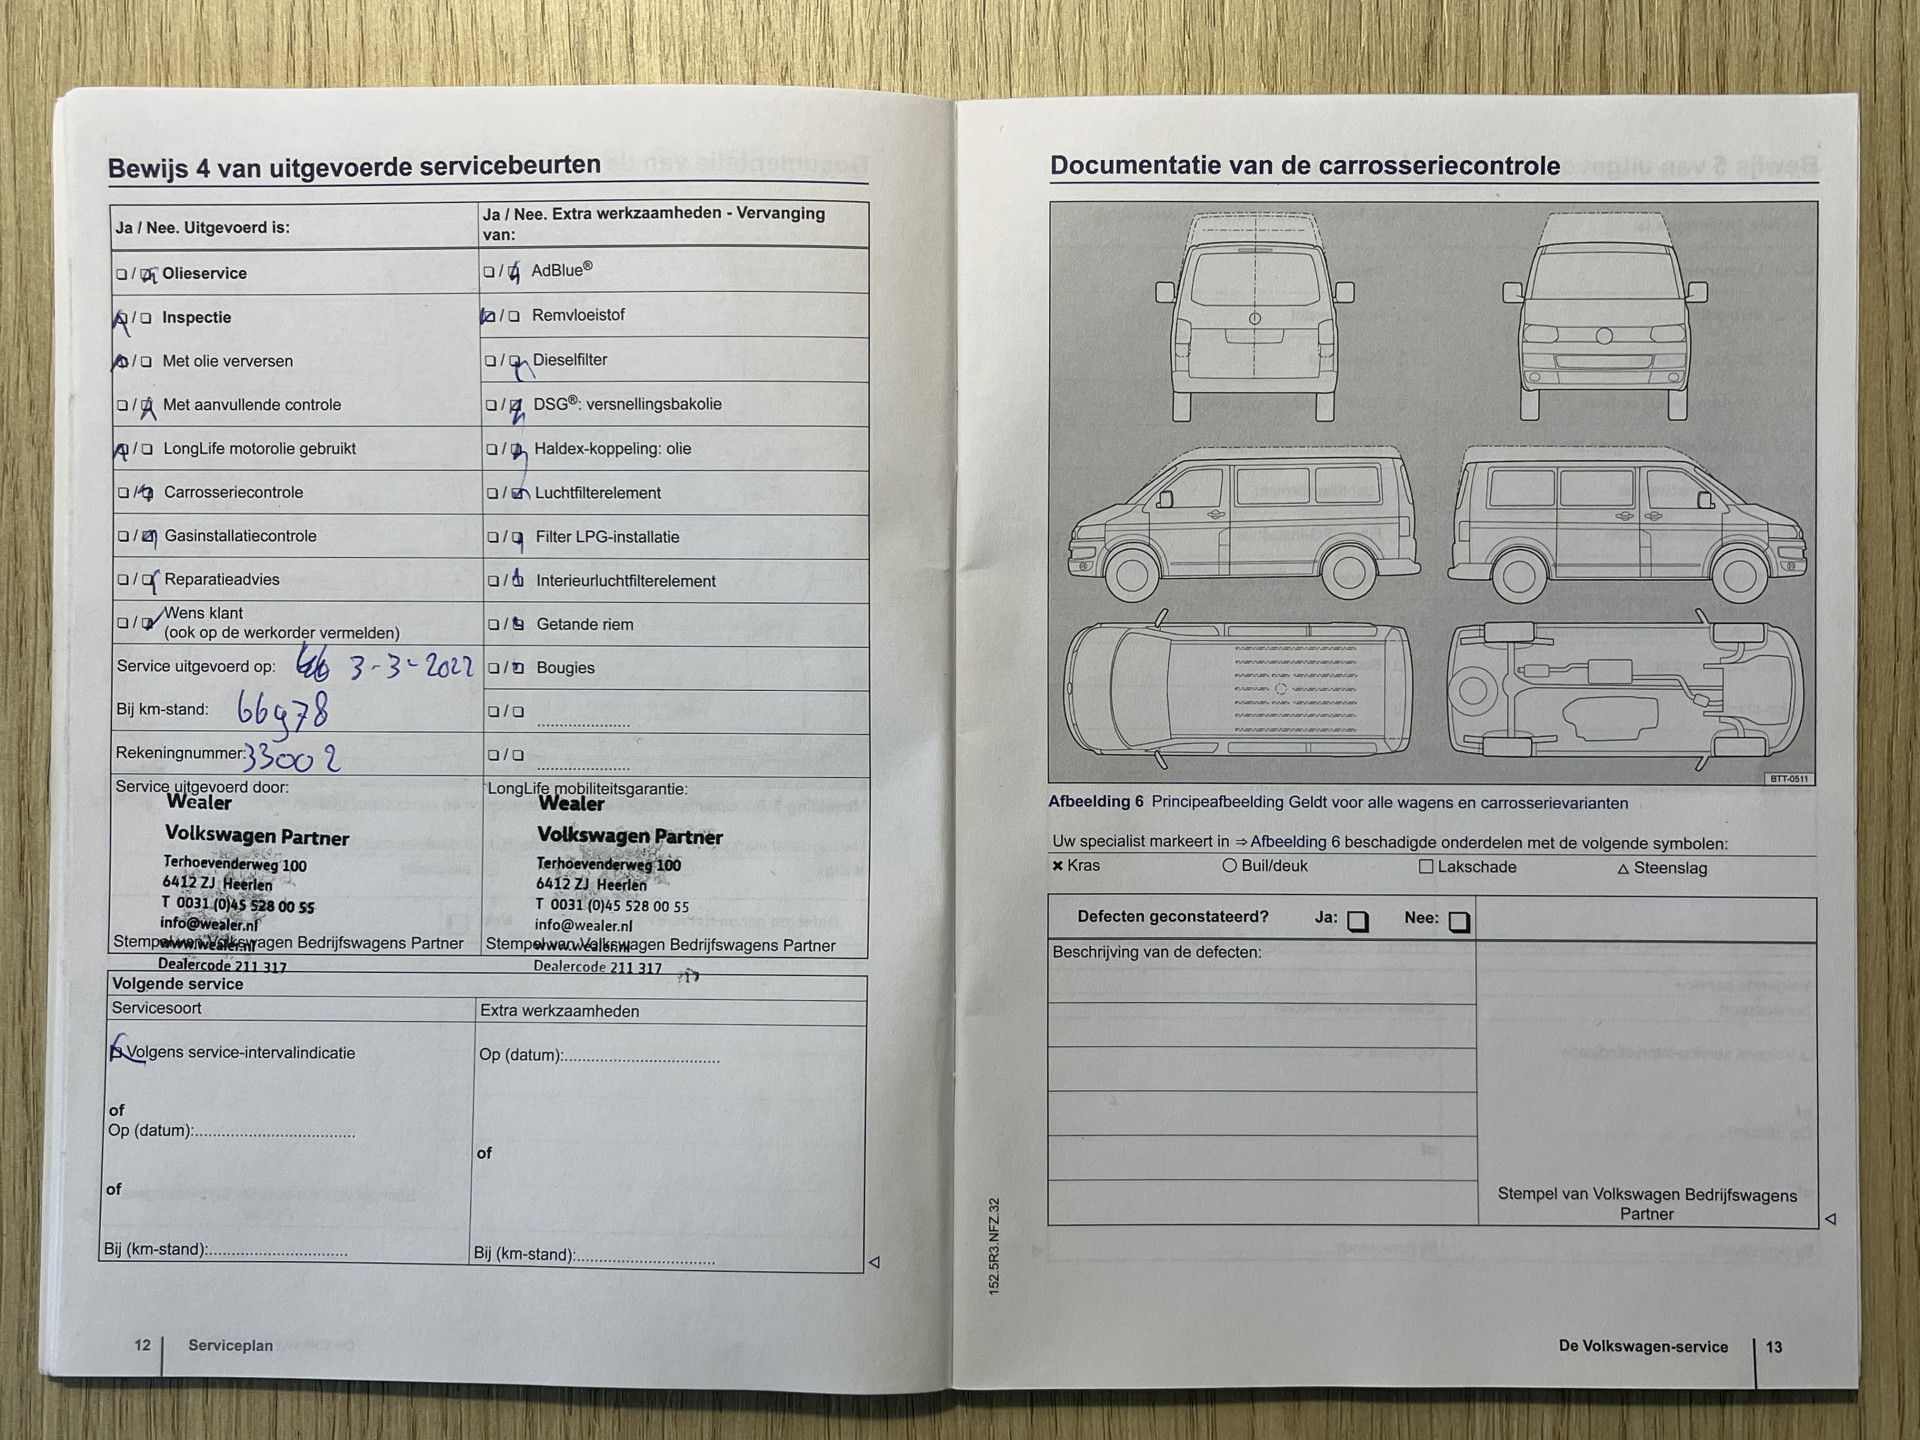 Bewijs 4 van uitgevoerde servicebeurten
Ja / Nee. Uitgevoerd is:
Ja / Nee. Extra werkzaamheden - Vervanging
van:
/ Olieservice
/ AdBlue®
/ Inspectie
/ Remvloeistof
/ Met olie verversen
/ Dieselfilter
/ Met aanvullende controle
/ DSG®: versnellingsbakolie
/ LongLife motorolie gebruikt
/ Haldex-koppeling: olie
/ Carrosseriecontrole
/ Luchtfilterelement
/ Gasinstallatiecontrole
/ Filter LPG-installatie
/ Reparatieadvies
/ Interieurluchtfilterelement
/ Wens klant
(ook op de werkorder vermelden)
/ Getande riem
Service uitgevoerd op: 3-3-2022
/ Bougies
Bij km-stand: 66978
/
Rekeningnummer: 33002
/
Service uitgevoerd door:
Wealer
Volkswagen Partner
Terhoevenderweg 100
6412 ZJ Heerlen
T 0031 (0)45 528 00 55
info@wealer.nl
www.wealer.nl
Stempel van Volkswagen Bedrijfswagens Partner
Dealercode 211 317
LongLife mobiliteitsgarantie:
Wealer
Volkswagen Partner
Terhoevenderweg 100
6412 ZJ Heerlen
T 0031 (0)45 528 00 55
info@wealer.nl
www.wealer.nl
Stempel van Volkswagen Bedrijfswagens Partner
Dealercode 211 317
Volgende service
Servicesoort
Extra werkzaamheden
Volgens service-intervalindicatie
of
Op (datum):
of
Bij (km-stand):
Op (datum):
of
Bij (km-stand):
12 Serviceplan
Documentatie van de carrosseriecontrole
BTT-0511
Afbeelding 6 Principeafbeelding Geldt voor alle wagens en carrosserievarianten
Uw specialist markeert in ⇒ Afbeelding 6 beschadigde onderdelen met de volgende symbolen:
× Kras ○ Buil/deuk □ Lakschade △ Steenslag
Defecten geconstateerd? Ja: Nee:
Beschrijving van de defecten:
Stempel van Volkswagen Bedrijfswagens
Partner
152.5R3.NFZ.32
De Volkswagen-service 13